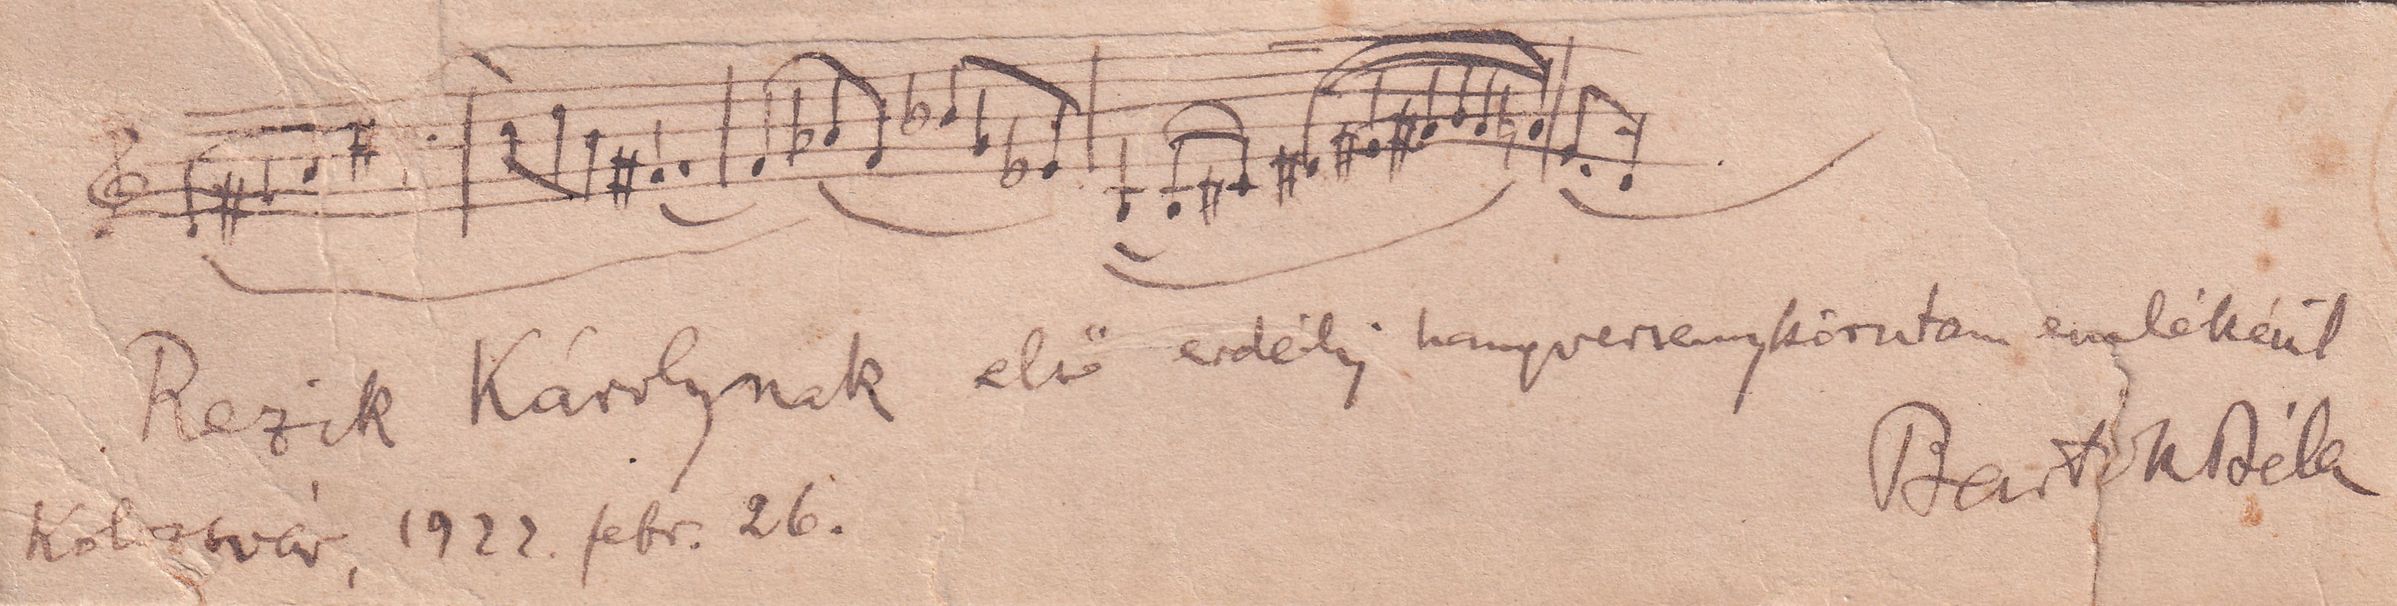 Rezik Károlynak első erdélyi hangversenykörutam emlékéül
Bartók Béla
Kolozsvár, 1922. febr. 26.